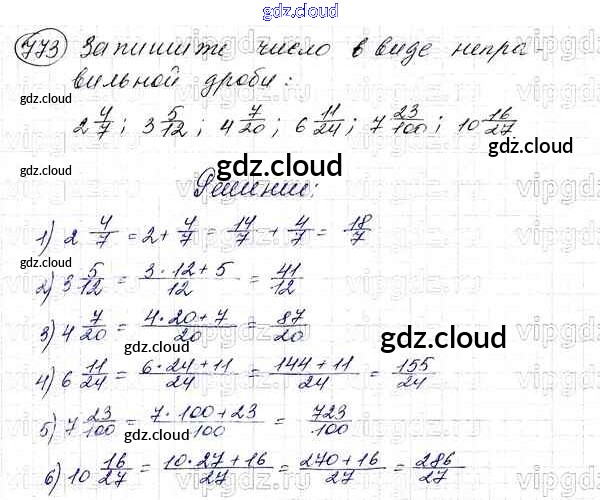 gdz.cloud
773 Запишите число в виде непра-
вильной дроби:
gdz.cloud gdz.cloud
2 4/7; 3 5/12; 4 7/20; 6 11/24; 7 23/100; 10 16/27
gdz.cloud gdz.cloud
Решение:
gdz.cloud
1) 2 4/7 = 2 + 4/7 = 14/7 + 4/7 = 18/7
2) 3 5/12 = (3·12+5)/12 = 41/12
3) 4 7/20 = (4·20+7)/20 = 87/20
gdz.cloud gdz.cloud
4) 6 11/24 = (6·24+11)/24 = (144+11)/24 = 155/24
5) 7 23/100 = (7·100+23)/100 = 723/100
gdz.cloud gdz.cloud
6) 10 16/27 = (10·27+16)/27 = (270+16)/27 = 286/27